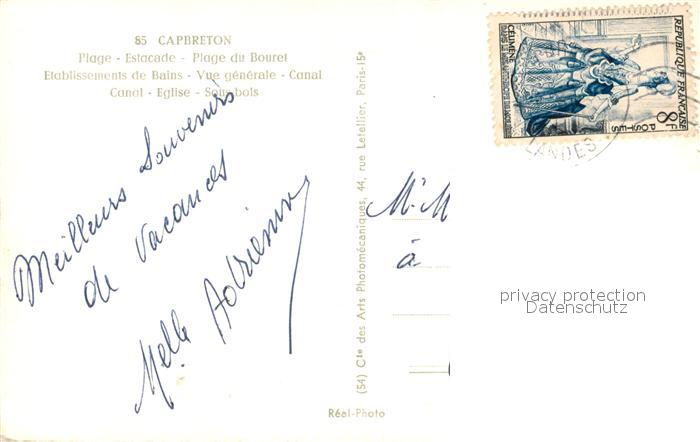 85 CAPBRETON
Plage - Estacade - Plage du Bouret
Etablissements de Bains - Vue générale - Canal
Canal - Eglise - Sous-bois
Meilleurs Souvenirs
de Vacances
Melle Adrienne
(54) Cie des Arts Photomécaniques, 44, rue Letellier, Paris-15e
Réel-Photo
RÉPUBLIQUE FRANÇAISE
8F
POSTES
CÉLIMÈNE
LANDES
Mr M
à
privacy protection
Datenschutz